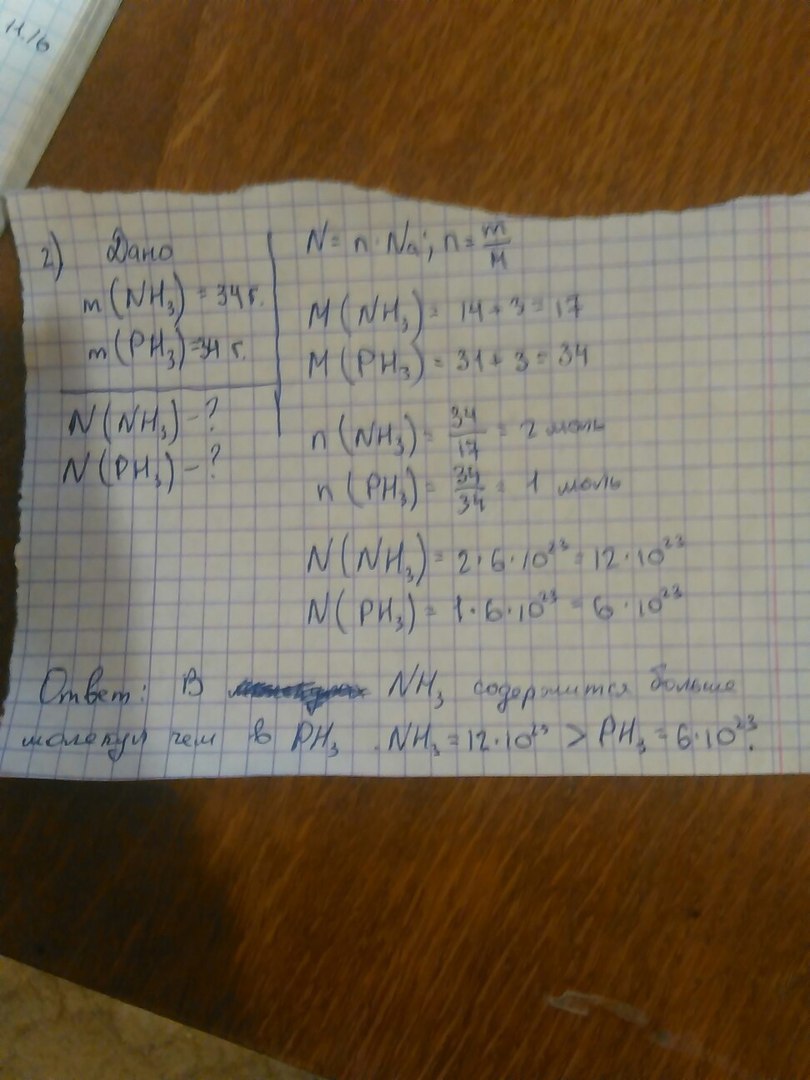 11.16
2) Дано
m(NH₃) = 34 г.
m(PH₃) = 34 г.
N(NH₃) - ?
N(PH₃) - ?
N = n · Na; n = m/M
M(NH₃) = 14 + 3 = 17
M(PH₃) = 31 + 3 = 34
n(NH₃) = 34/17 = 2 моль
n(PH₃) = 34/34 = 1 моль
N(NH₃) = 2 · 6 · 10²³ = 12 · 10²³
N(PH₃) = 1 · 6 · 10²³ = 6 · 10²³
Ответ: В NH₃ содержится больше
молекул чем в PH₃. NH₃ = 12 · 10²³ > PH₃ = 6 · 10²³.